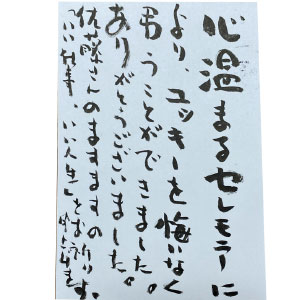 心温まるセレモニーに
より、ユッキーを悔いなく
弔うことができました。
ありがとうございました。
佐藤さんのますますの
「いい仕事、いい人生」をお祈りします。